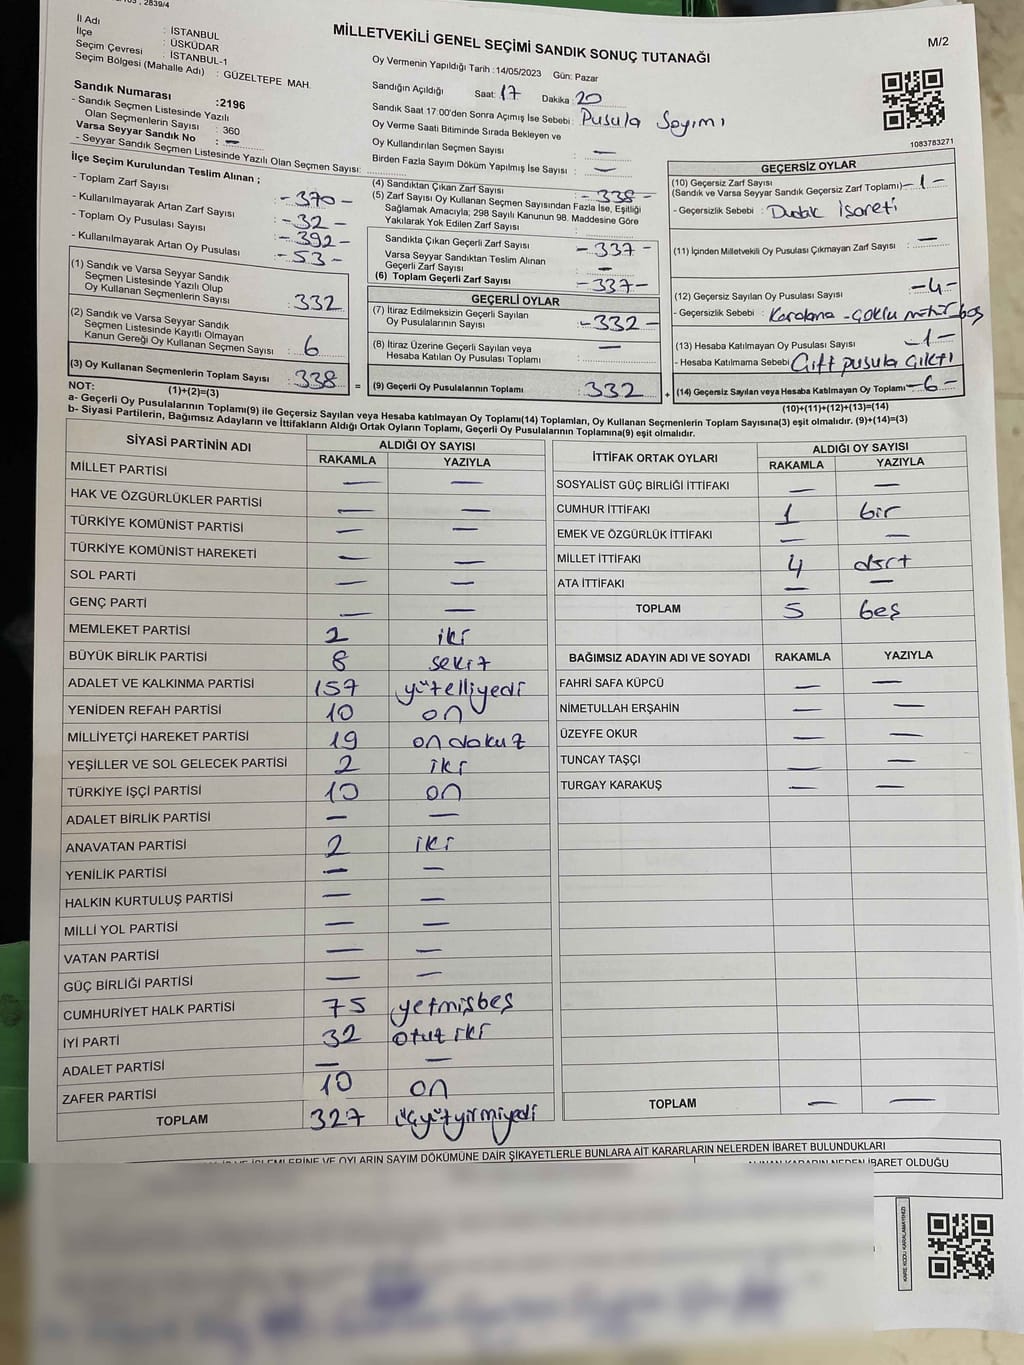 , 2839/4
MİLLETVEKİLİ GENEL SEÇİMİ SANDIK SONUÇ TUTANAĞI
M/2
İl Adı : İSTANBUL
İlçe : ÜSKÜDAR
Seçim Çevresi : İSTANBUL-1
Seçim Bölgesi (Mahalle Adı) : GÜZELTEPE MAH.
Sandık Numarası :2196
- Sandık Seçmen Listesinde Yazılı
Olan Seçmenlerin Sayısı : 360
Varsa Seyyar Sandık No : —
- Seyyar Sandık Seçmen Listesinde Yazılı Olan Seçmen Sayısı:
Oy Vermenin Yapıldığı Tarih :14/05/2023 Gün: Pazar
Sandığın Açıldığı Saat: 17 Dakika : 20
Sandık Saat 17:00'den Sonra Açımış İse Sebebi : Pusula Sayımı
Oy Verme Saati Bitiminde Sırada Bekleyen ve
Oy Kullandırılan Seçmen Sayısı : —
Birden Fazla Sayım Döküm Yapılmış İse Sayısı : —
1083783271
İlçe Seçim Kurulundan Teslim Alınan ;
- Toplam Zarf Sayısı :-370-
- Kullanılmayarak Artan Zarf Sayısı :-32-
- Toplam Oy Pusulası Sayısı :-392-
- Kullanılmayarak Artan Oy Pusulası :-53-
(1) Sandık ve Varsa Seyyar Sandık
Seçmen Listesinde Yazılı Olup
Oy Kullanan Seçmenlerin Sayısı : 332
(2) Sandık ve Varsa Seyyar Sandık
Seçmen Listesinde Kayıtlı Olmayan
Kanun Gereği Oy Kullanan Seçmen Sayısı : 6
(3) Oy Kullanan Seçmenlerin Toplam Sayısı : 338
(1)+(2)=(3)
(4) Sandıktan Çıkan Zarf Sayısı :-338-
(5) Zarf Sayısı Oy Kullanan Seçmen Sayısından Fazla İse, Eşitliği
Sağlamak Amacıyla; 298 Sayılı Kanunun 98. Maddesine Göre
Yakılarak Yok Edilen Zarf Sayısı :
Sandıkta Çıkan Geçerli Zarf Sayısı :-337-
Varsa Seyyar Sandıktan Teslim Alınan
Geçerli Zarf Sayısı : —
(6) Toplam Geçerli Zarf Sayısı :-337-
GEÇERLİ OYLAR
(7) İtiraz Edilmeksizin Geçerli Sayılan
Oy Pusulalarının Sayısı :-332-
(8) İtiraz Üzerine Geçerli Sayılan veya
Hesaba Katılan Oy Pusulası Toplamı : —
= (9) Geçerli Oy Pusulalarının Toplamı : 332
GEÇERSİZ OYLAR
(10) Geçersiz Zarf Sayısı
(Sandık ve Varsa Seyyar Sandık Geçersiz Zarf Toplamı) -1-
- Geçersizlik Sebebi : Dudak İşareti
(11) İçinden Milletvekili Oy Pusulası Çıkmayan Zarf Sayısı : —
(12) Geçersiz Sayılan Oy Pusulası Sayısı : -4-
- Geçersizlik Sebebi : Karalama - çoklu mühür-boş
(13) Hesaba Katılmayan Oy Pusulası Sayısı : -1-
- Hesaba Katılmama Sebebi : Çift pusula çıktı
+ (14) Geçersiz Sayılan veya Hesaba Katılmayan Oy Toplamı :-6-
(10)+(11)+(12)+(13)=(14)
NOT:
a- Geçerli Oy Pusulalarının Toplamı(9) ile Geçersiz Sayılan veya Hesaba katılmayan Oy Toplamı(14) Toplamları, Oy Kullanan Seçmenlerin Toplam Sayısına(3) eşit olmalıdır. (9)+(14)=(3)
b- Siyasi Partilerin, Bağımsız Adayların ve İttifakların Aldığı Ortak Oyların Toplamı, Geçerli Oy Pusulalarının Toplamına(9) eşit olmalıdır.
SİYASİ PARTİNİN ADI ALDIĞI OY SAYISI
RAKAMLA YAZIYLA
MİLLET PARTİSİ — —
HAK VE ÖZGÜRLÜKLER PARTİSİ — —
TÜRKİYE KOMÜNİST PARTİSİ — —
TÜRKİYE KOMÜNİST HAREKETİ — —
SOL PARTİ — —
GENÇ PARTİ — —
MEMLEKET PARTİSİ 2 iki
BÜYÜK BİRLİK PARTİSİ 8 sekiz
ADALET VE KALKINMA PARTİSİ 157 yüzelliyedi
YENİDEN REFAH PARTİSİ 10 on
MİLLİYETÇİ HAREKET PARTİSİ 19 ondokuz
YEŞİLLER VE SOL GELECEK PARTİSİ 2 iki
TÜRKİYE İŞÇİ PARTİSİ 10 on
ADALET BİRLİK PARTİSİ — —
ANAVATAN PARTİSİ 2 iki
YENİLİK PARTİSİ — —
HALKIN KURTULUŞ PARTİSİ — —
MİLLİ YOL PARTİSİ — —
VATAN PARTİSİ — —
GÜÇ BİRLİĞİ PARTİSİ — —
CUMHURİYET HALK PARTİSİ 75 yetmişbeş
İYİ PARTİ 32 otuz iki
ADALET PARTİSİ — —
ZAFER PARTİSİ 10 on
TOPLAM 327 üçyüzyirmiyedi
İTTİFAK ORTAK OYLARI ALDIĞI OY SAYISI
RAKAMLA YAZIYLA
SOSYALİST GÜÇ BİRLİĞİ İTTİFAKI — —
CUMHUR İTTİFAKI 1 bir
EMEK VE ÖZGÜRLÜK İTTİFAKI — —
MİLLET İTTİFAKI 4 dört
ATA İTTİFAKI — —
TOPLAM 5 beş
BAĞIMSIZ ADAYIN ADI VE SOYADI RAKAMLA YAZIYLA
FAHRİ SAFA KÜPCÜ — —
NİMETULLAH ERŞAHİN — —
ÜZEYFE OKUR — —
TUNCAY TAŞÇI — —
TURGAY KARAKUŞ — —
TOPLAM — —
İŞLEMLERİNE VE OYLARIN SAYIM DÖKÜMÜNE DAİR ŞİKAYETLERLE BUNLARA AİT KARARLARIN NELERDEN İBARET BULUNDUKLARI
ALINAN KARARIN NEDEN İBARET OLDUĞU
KARE KODU KARALAMAYINIZ!